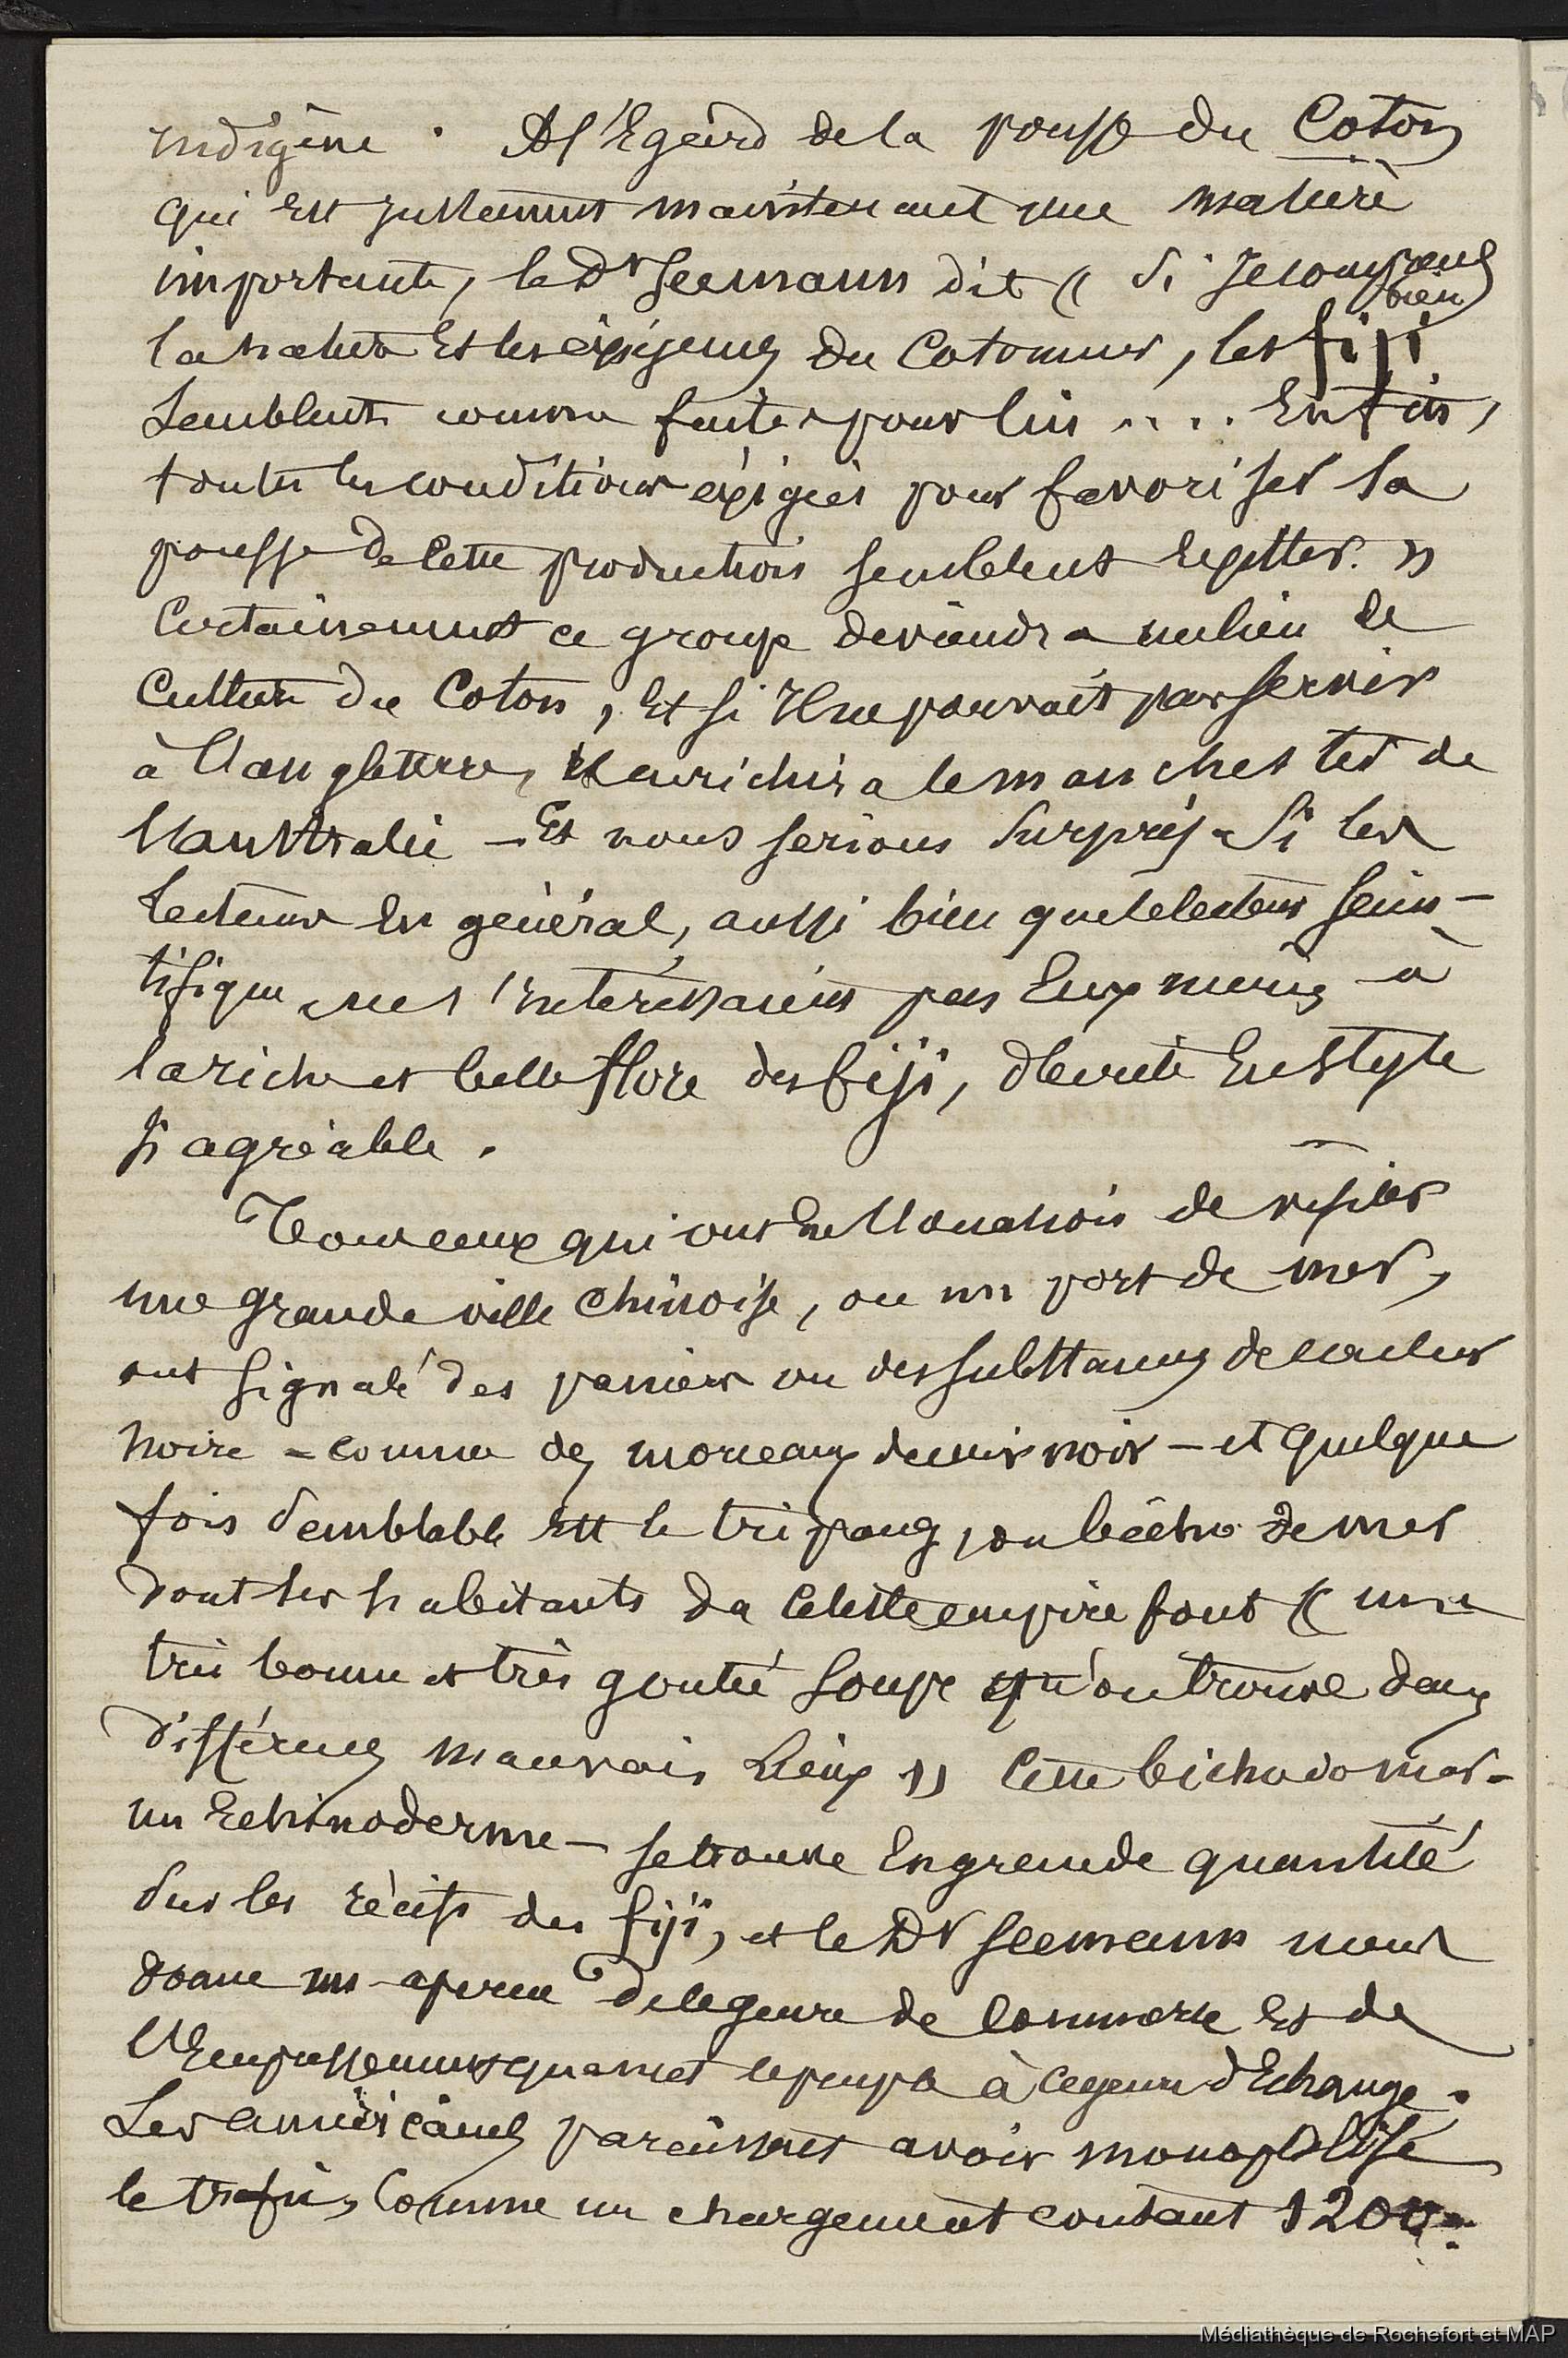 indigène. A l'Egard de la pousse du Coton
qui est justement maintenant une matière
importante, le Dr Seemann dit « Si Je comprends bien
la nature Et les exigences du Cotonnier, les fiji
Semblent comme faites pour lui .... Enfin,
toutes les conditions exigées pour favoriser la
pousse de cette production semblent exister. »
Certainement ce groupe deviendra un lieu de
Culture du Coton, Et si Il ne pouvait pas servir
à l'angleterre, Il enrichira le manchester de
l'australie – Et nous serions Surpris Si les
lecteurs En général, aussi bien que le lecteur scien-
tifique ne s'intéressaient pas Eux mêmes à
la riche et belle flore des fiji, décrite En Style
si agréable.
Tous ceux qui ont Eu l'occasion de visiter
une grande ville chinoise, ou un port de mer,
ont signalé des paniers ou des substances de couleur
noire – comme des morceaux de cuir noir – et quelque
fois Semblable Est le tripang, ou bèche de mer
dont les habitants du Celeste empire font « une
très bonne et très goutée Soupe qu'on trouve dans
différents mauvais Lieux » Cette biche do mar –
un Echinoderme – se trouve En grande quantité
Sur les récifs des fiji, et le Dr Seemann nous
donne un apercu de le genre de commerce Et de
l'Empressement que met le peuple à ce genre d'Echange.
Les américains paraissent avoir monopolisé
le trafic, Comme un chargement coutant 1200
Médiathèque de Rochefort et MAP